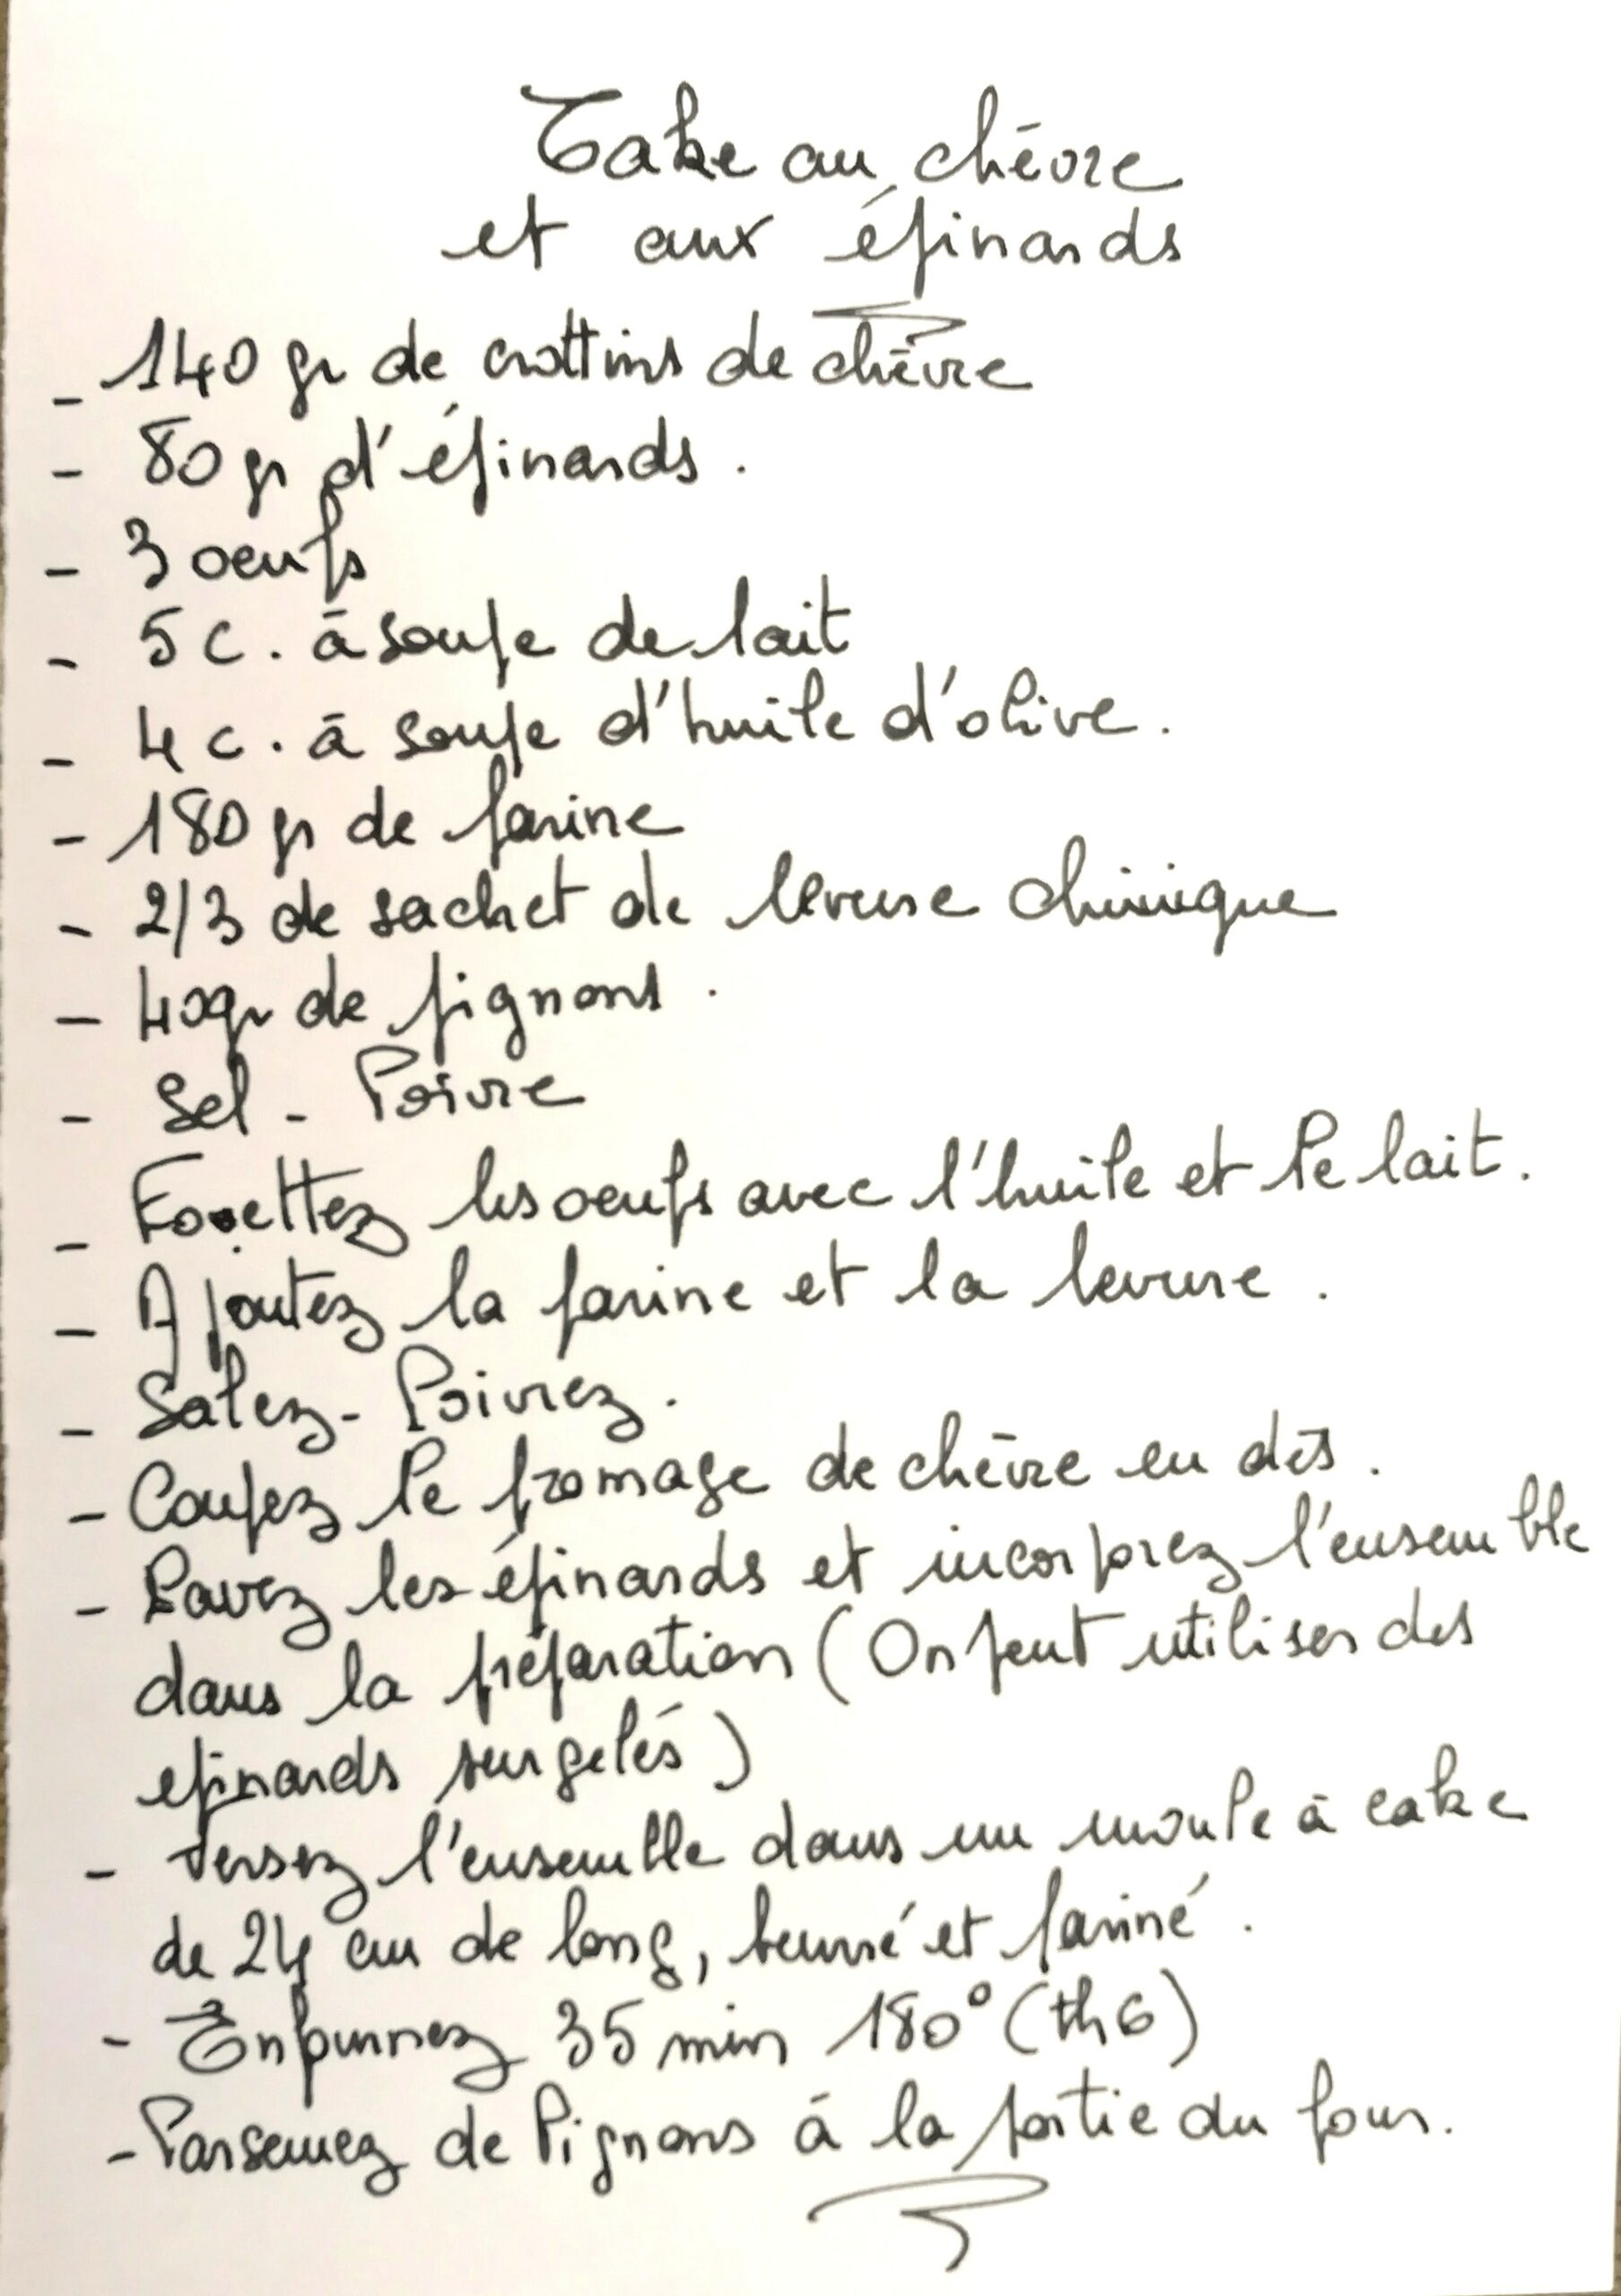 Cake au chèvre
et aux épinards
- 140 gr de crottins de chèvre
- 80 gr d'épinards.
- 3 oeufs
- 5 c. à soupe de lait
- 4 c. à soupe d'huile d'olive.
- 180 gr de farine
- 2/3 de sachet de levure chimique
- 40gr de pignons.
- Sel - Poivre
- Fouettez les oeufs avec l'huile et le lait.
- Ajoutez la farine et la levure.
- Salez - Poivrez.
- Coupez le fromage de chèvre en dés.
- Lavez les épinards et incorporez l'ensemble
dans la préparation (On peut utiliser des
epinards surgelés)
- Versez l'ensemble dans un moule à cake
de 24 cm de long, beurré et fariné.
- Enfournez 35 min 180° (th6)
- Parsemez de Pignons à la sortie du four.